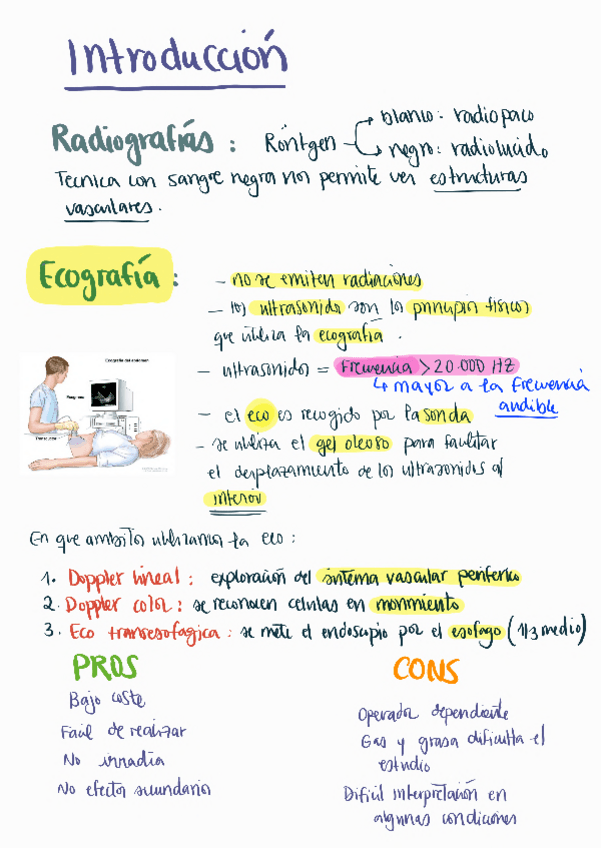 Introducción
Radiografías : Röntgen
blanco: radiopaco
negro: radiolucido
Tecnica con sangre negra nos permite ver estructuras
vasculares.
Ecografía :
- no se emiten radiaciones
- los ultrasonidos son los principios fisicos
que utiliza la ecografia.
- ultrasonidos = Frecuencia > 20.000 HZ
↳ mayor a la frecuencia
audible
- el eco es recogido por la sonda
- se utiliza el gel oleoso para facilitar
el desplazamiento de los ultrasonidos al
interior
En que ambitos utilizamos la eco :
1. Doppler lineal : exploración del sistema vascular periferico
2. Doppler color : se reconocen celulas en movimiento
3. Eco transesofagica : se mete el endoscopio por el esofago (1/3 medio)
PROS
Bajo coste
Facil de realizar
No irradia
No efectos secundarios
CONS
Operador dependiente
Gas y grasa dificulta el
estudio
Dificil interpretación en
algunas condiciones